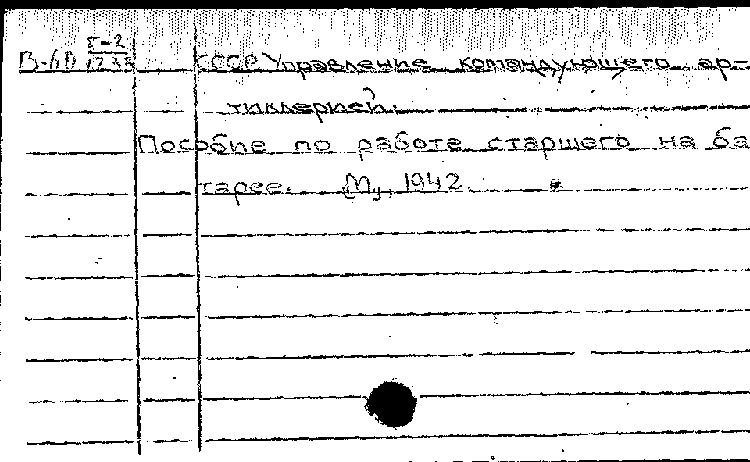 Г-2
В-60 1235 СССР Управление командующего ар-
тиллерией.
Пособие по работе старшего на ба
тарее. М., 1942.